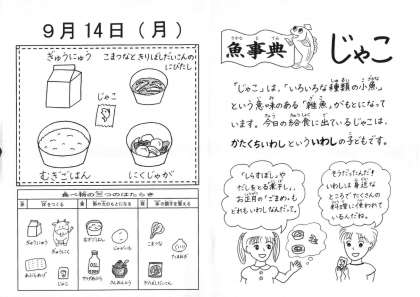 9月14日（月）
ぎゅうにゅう
こまつなときりぼしだいこんの
にびたし
じゃこ
むぎごはん
にくじゃが
食べ物の三つのはたらき
体をつくる
熱や力のもとになる
体の調子を整える
ぎゅうにゅう
ぎゅうにく
あぶらあげ
じゃこ
むぎごはん
じゃがいも
こまつな
たまねぎ
きりぼしだいこん
魚事典
じゃこ
「じゃこ」は、「いろいろな種類の小魚」
という意味のある「雑魚」がもとになって
います。今日の給食に出ているじゃこは、
かたくちいわしといういわしの子どもです。
「しらすぼし」や
だしをとる煮干し、
お正月の「ごまめ」も
どれもいわしなんだって。
そうだったんだ！
いわしは身近な
ところでたくさんの
料理に使われて
いるんだね。